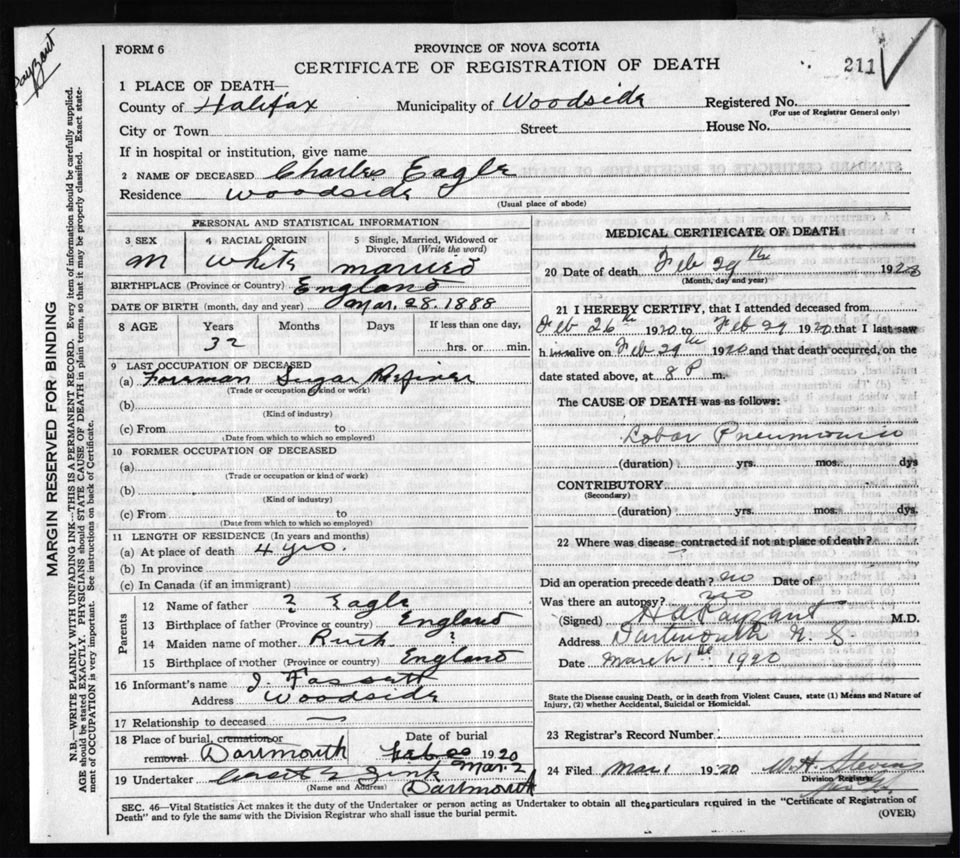 FORM 6
PROVINCE OF NOVA SCOTIA
CERTIFICATE OF REGISTRATION OF DEATH
211
Payzant
MARGIN RESERVED FOR BINDING
N.B.—WRITE PLAINLY WITH UNFADING INK—THIS IS A PERMANENT RECORD. Every item of information should be carefully supplied.
AGE should be stated EXACTLY. PHYSICIANS should STATE CAUSE OF DEATH in plain terms, so that it may be properly classified. Exact state-
ment of OCCUPATION is very important. See instructions on back of Certificate.
1 PLACE OF DEATH—
County of Halifax Municipality of Woodside Registered No.
(For use of Registrar General only)
City or Town Street House No.
If in hospital or institution, give name
2 NAME OF DECEASED Charles Eagle
Residence Woodside
(Usual place of abode)
PERSONAL AND STATISTICAL INFORMATION
3 SEX 4 RACIAL ORIGIN 5 Single, Married, Widowed or
Divorced (Write the word)
M White married
BIRTHPLACE (Province or Country) England
DATE OF BIRTH (month, day and year) Mar. 28. 1888
8 AGE Years Months Days If less than one day,
32 hrs. or min.
9 LAST OCCUPATION OF DECEASED
(a) Forman Sugar Refiner
(Trade or occupation kind or work)
(b)
(Kind of industry)
(c) From to
(Date from which to which so employed)
10 FORMER OCCUPATION OF DECEASED
(a)
(Trade or occupation or kind of work)
(b)
(Kind of industry)
(c) From to
(Date from which to which so employed)
11 LENGTH OF RESIDENCE (In years and months)
(a) At place of death 4 yrs.
(b) In province
(c) In Canada (if an immigrant)
Parents
12 Name of father ? Eagle
13 Birthplace of father (Province or country) England
14 Maiden name of mother Ruth ?
15 Birthplace of mother (Province or country) England
16 Informant's name J. Fassett
Address Woodside
17 Relationship to deceased —
18 Place of burial, cremation or Date of burial
removal Dartmouth Feb 1920
Mar. 2
19 Undertaker Zink
(Name and Address) Dartmouth
MEDICAL CERTIFICATE OF DEATH
20 Date of death Feb 29th 1920
(Month, day and year)
21 I HEREBY CERTIFY, that I attended deceased from
Feb 26th 1920 to Feb 29 1920 that I last saw
h im alive on Feb 29th 1920 and that death occurred, on the
date stated above, at 8 P m.
The CAUSE OF DEATH was as follows:
Lobar Pneumonia
(duration) yrs. mos. dys
CONTRIBUTORY
(Secondary)
(duration) yrs. mos. dys.
22 Where was disease contracted if not at place of death?
Did an operation precede death? no Date of
Was there an autopsy? no
(Signed) H A Payzant M.D.
Address Dartmouth N. S.
Date March 1st 1920
State the Disease causing Death, or in death from Violent Causes, state (1) Means and Nature of
Injury, (2) whether Accidental, Suicidal or Homicidal.
23 Registrar's Record Number
24 Filed Mar 1 1920 W. H. Stevens
Division Registrar
SEC. 46—Vital Statistics Act makes it the duty of the Undertaker or person acting as Undertaker to obtain all the particulars required in the "Certificate of Registration of
Death" and to fyle the same with the Division Registrar who shall issue the burial permit.
(OVER)